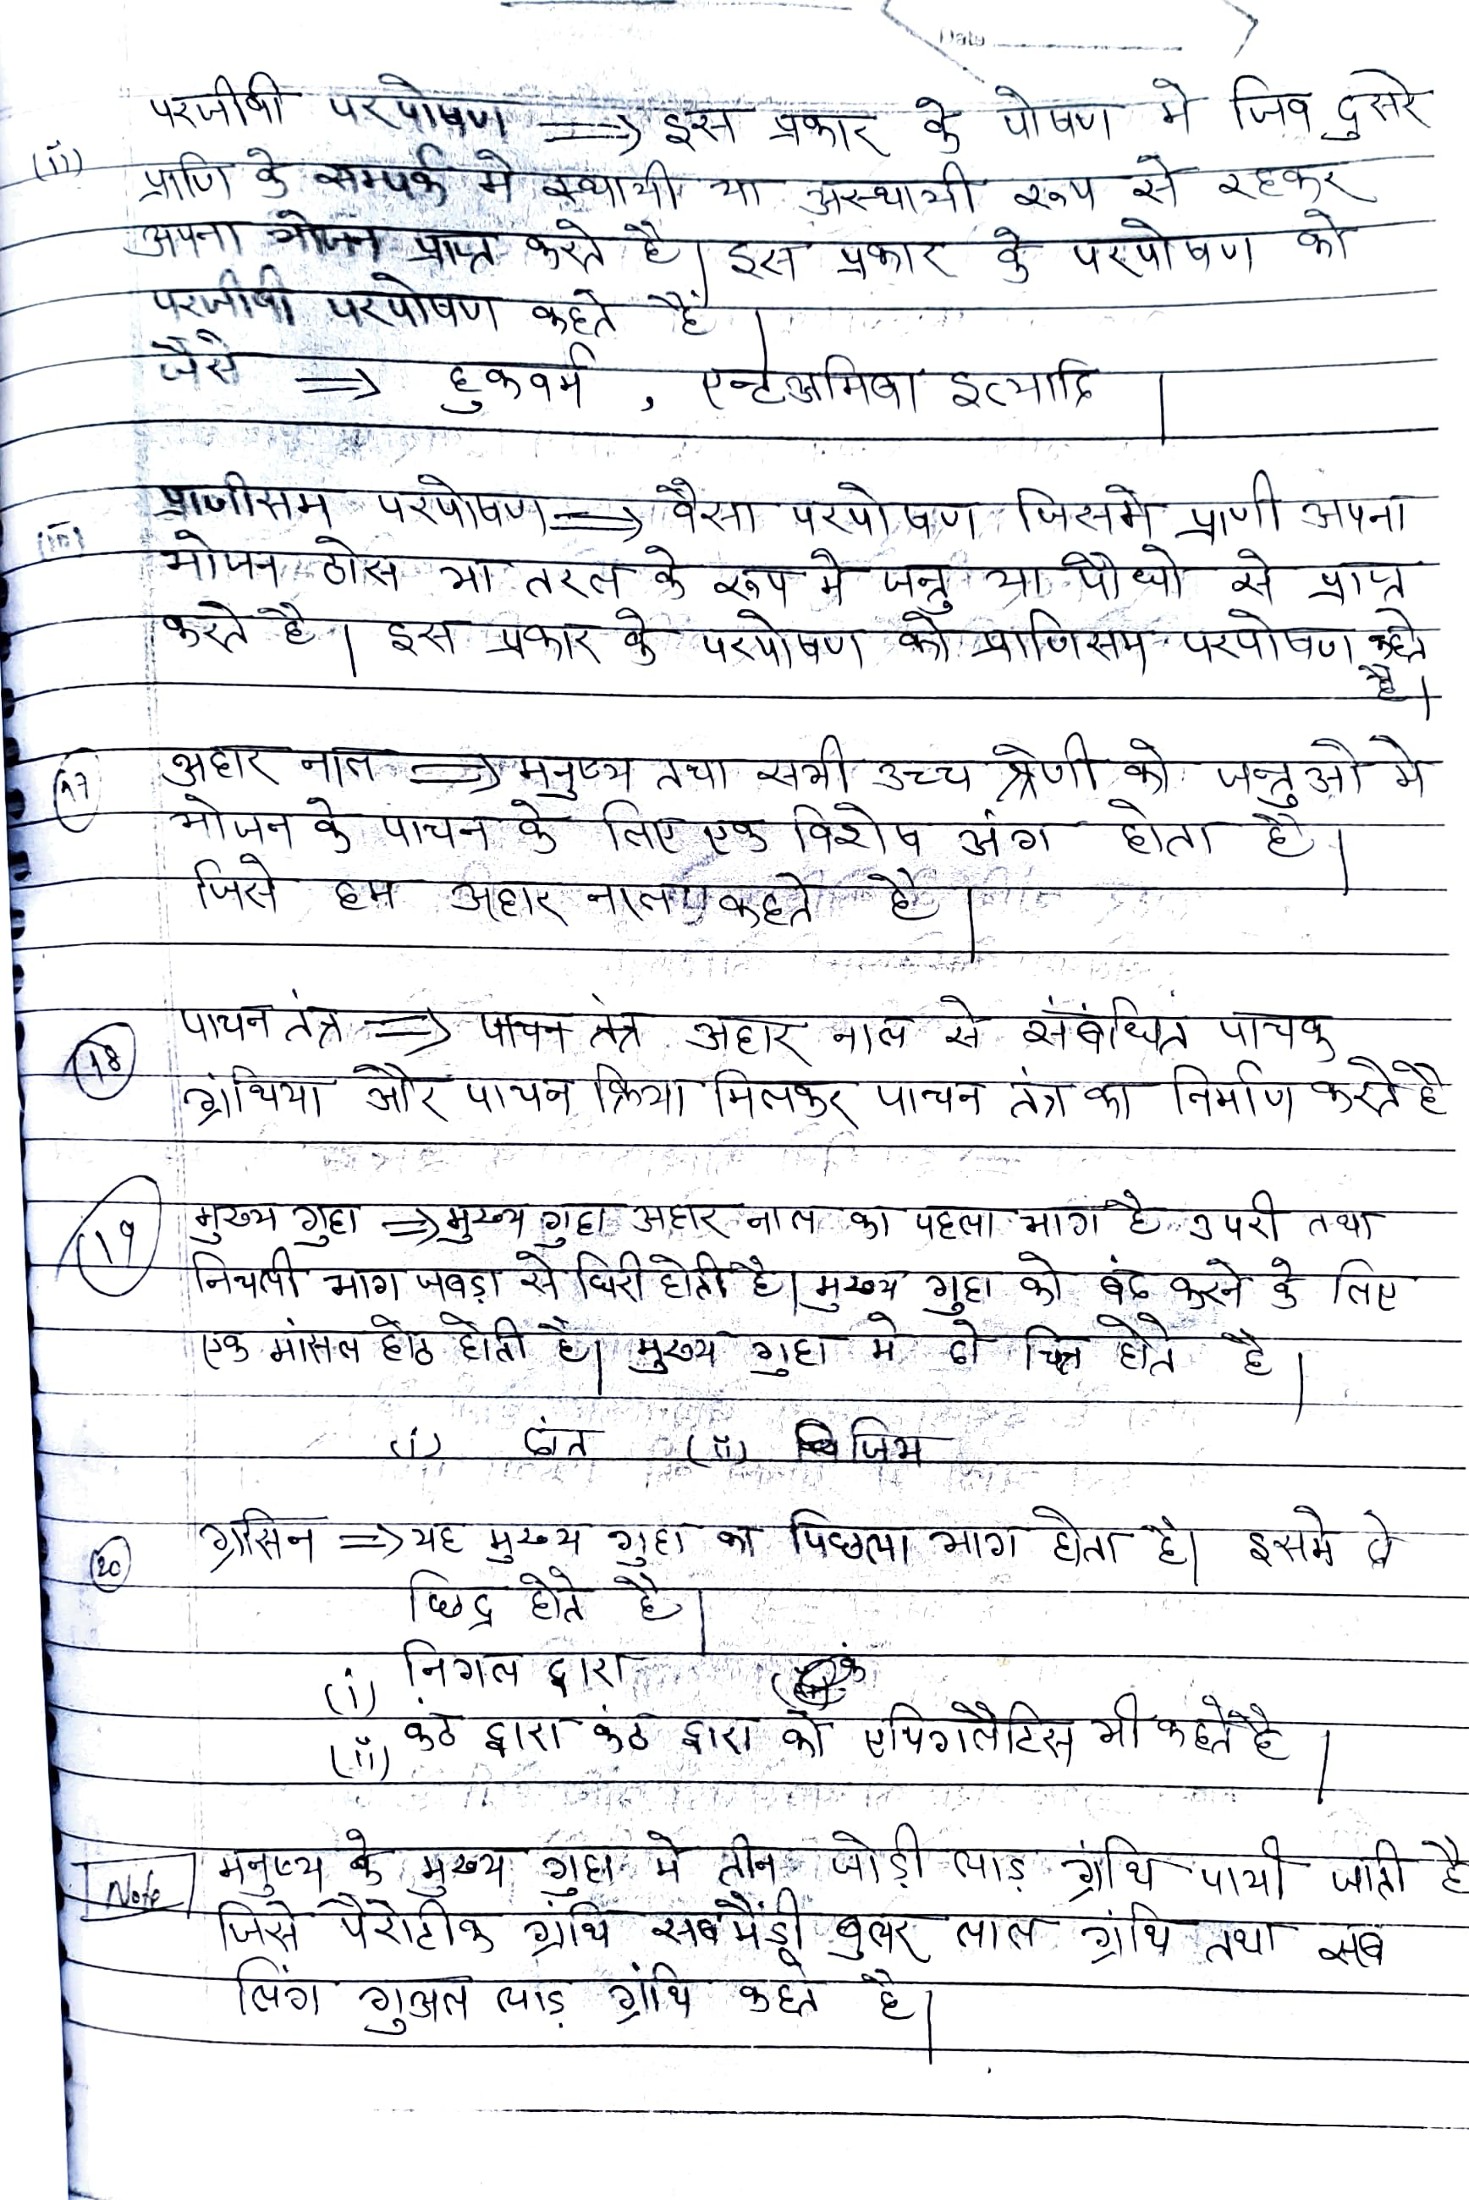 Date
परजीवी परपोषण ⟹ इस प्रकार के पोषण मे जिव दुसरे
(ii) प्राणि के सम्पर्क मे स्थायी या अस्थायी रूप से रहकर
अपना भोजन प्राप्त करते है। इस प्रकार के परपोषण को
परजीवी परपोषण कहते हैं।
जैसे ⟹ हुकवर्म , एन्टअमिबा इत्यादि।
(iii) प्राणीसम परपोषण ⟹ वैसा परपोषण जिसमे प्राणी अपना
भोजन ठोस या तरल के रूप मे जन्तु या पौधो से प्राप्त
करते है। इस प्रकार के परपोषण को प्राणिसम परपोषण कहते
है।
17 अहार नाल ⟹ मनुष्य तथा सभी उच्च श्रेणी को जन्तुओ मे
भोजन के पाचन के लिए एक विशेष अंग होता है।
जिसे हम अहार नाल कहते है।
18 पाचन तंत्र ⟹ पाचन तंत्र अहार नाल से संबंधित पाचक
ग्रंथिया और पाचन क्रिया मिलकर पाचन तंत्र का निर्माण करते है
19 मुख्य गुहा ⟹ मुख्य गुहा अहार नाल का पहला भाग है उपरी तथा
निचली भाग जबड़ा से घिरी होती है। मुख्य गुहा को बंद करने के लिए
एक मांसल होठ होती है। मुख्य गुहा मे दो होते है।
(i) दांत (ii) जिभ
20 ग्रसिन ⟹ यह मुख्य गुहा का पिछला भाग होता है। इसमे दो
छिद्र होते है।
(i) निगल द्वारा
(ii) कंठ द्वारा कंठ द्वारा को एपिगलैटिस भी कहते है।
Note मनुष्य के मुख्य गुहा मे तीन जोड़ी लाड़ ग्रंथि पायी जाती है
जिसे पैरोटीक ग्रंथि सबमैंडी बुलर लाल ग्रंथि तथा सब
लिंग गुअल लाड़ ग्रंथि कहते है।